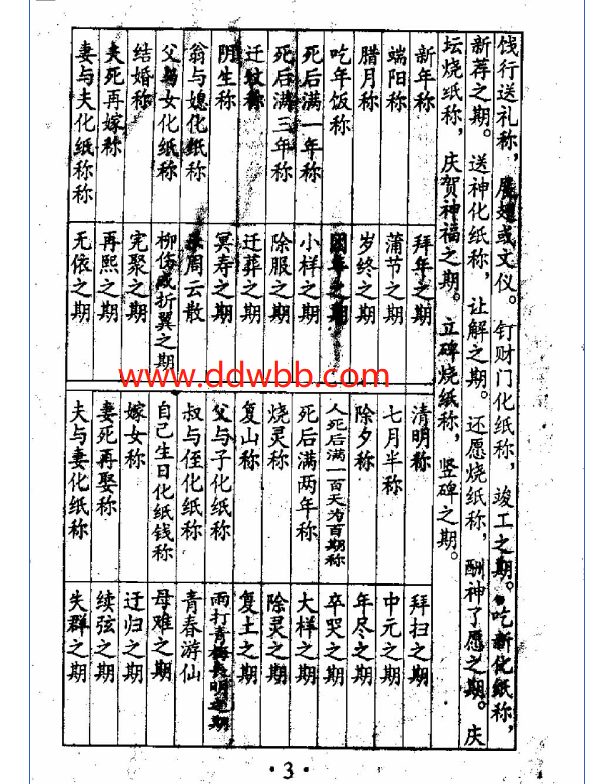 饯行送礼称，或文仪。钉财门化纸称，竣工之期。吃新化纸称，
新荐之期。送神化纸称，让解之期。还愿烧纸称，酬神了愿之期。庆
坛烧纸称，庆贺神福之期。立碑烧纸称，竖碑之期。
新年称
拜年之期
端阳称
蒲节之期
腊月称
岁终之期
吃年饭称
年之期
死后满一年称
小样之期
死后满三年称
除服之期
迁坟称
迁葬之期
阴生称
冥寿之期
翁与媳化纸称
周云散
父与女化纸称
柳伤戚折翼之期
结婚称
完聚之期
夫死再嫁称
再熙之期
妻与夫化纸称称
无依之期
清明称
拜扫之期
七月半称
中元之期
除夕称
年尽之期
人死后满一百天为百期称
卒哭之期
死后满两年称
大样之期
烧灵称
除灵之期
复山称
复土之期
父与子化纸称
雨打青梅明期
叔与侄化纸称
青春游仙
自己生日化纸钱称
母难之期
嫁女称
迂归之期
妻死再娶称
续弦之期
夫与妻化纸称
失群之期
www.ddwbb.com
·3·